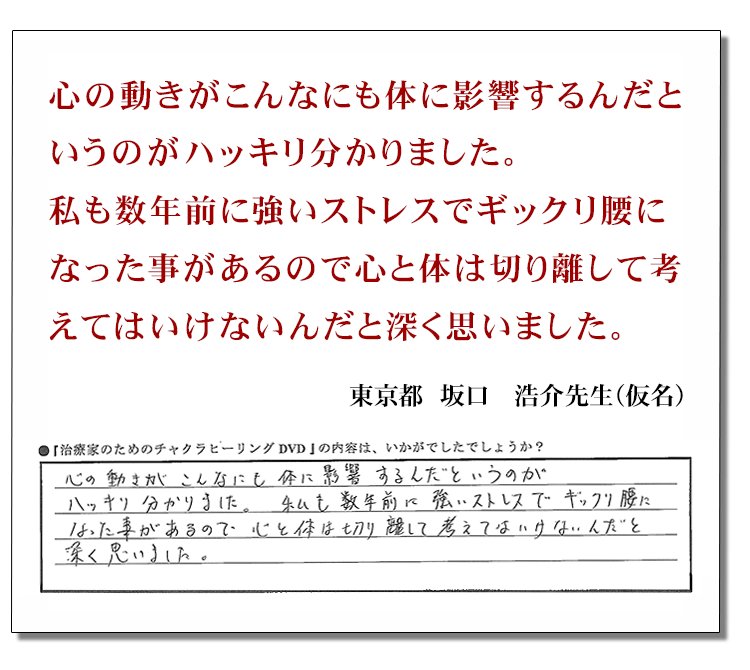 心の動きがこんなにも体に影響するんだと
いうのがハッキリ分かりました。
私も数年前に強いストレスでギックリ腰に
なった事があるので心と体は切り離して考
えてはいけないんだと深く思いました。
東京都 坂口 浩介先生（仮名）
●『治療家のためのチャクラヒーリングDVD』の内容は、いかがでしたでしょうか？
心の動きがこんなにも体に影響するんだというのが
ハッキリ分かりました。私も数年前に強いストレスでギックリ腰に
なった事があるので心と体は切り離して考えてはいけないんだと
深く思いました。